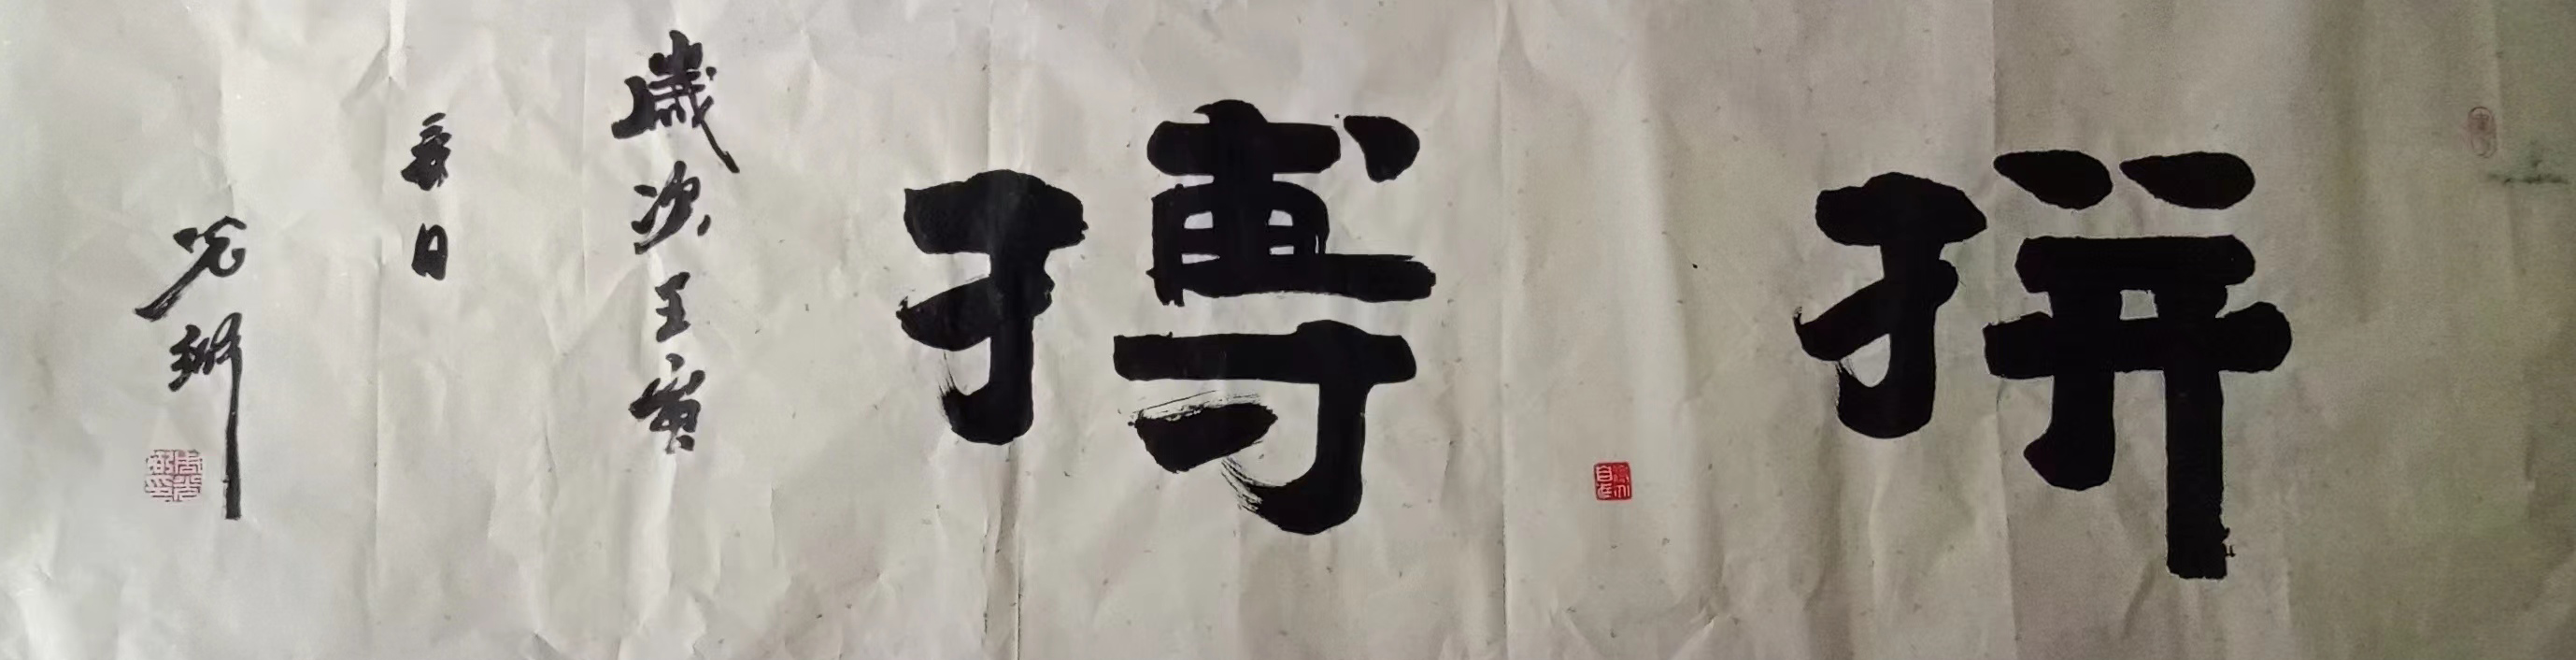 拼搏
歲次壬寅
春日
光